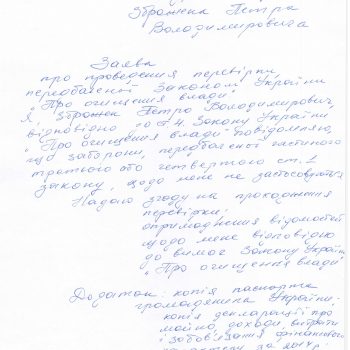 Зброжека Петра
Володимировича
Заява
про проведення перевірки,
передбаченої Законом України
"Про очищення влади"
Я, Зброжек Петро Володимирович,
відповідно до ст. 4 Закону України
"Про очищення влади" повідомляю,
що заборони, передбачені частиною
третьою або четвертою ст. 1
Закону, щодо мене не застосовуються
Надаю згоду на проходження
перевірки,
оприлюднення відомостей
щодо мене відповідно
до вимог Закону України
"Про очищення влади"
Додаток: копія паспорта
громадянина України;
копія декларації про
майно, доходи, витрати
і зобов'язання фінансового
характеру за 2014 р.